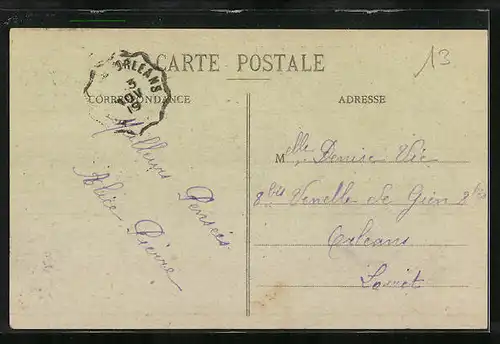 CARTE POSTALE
13
ORLEANS
CORRESPONDANCE
ADRESSE
Meilleures Pensées
Alice Pierre
Mlle Denise Vié
8bis Venelle de Gien 8bis
Orléans
Loiret